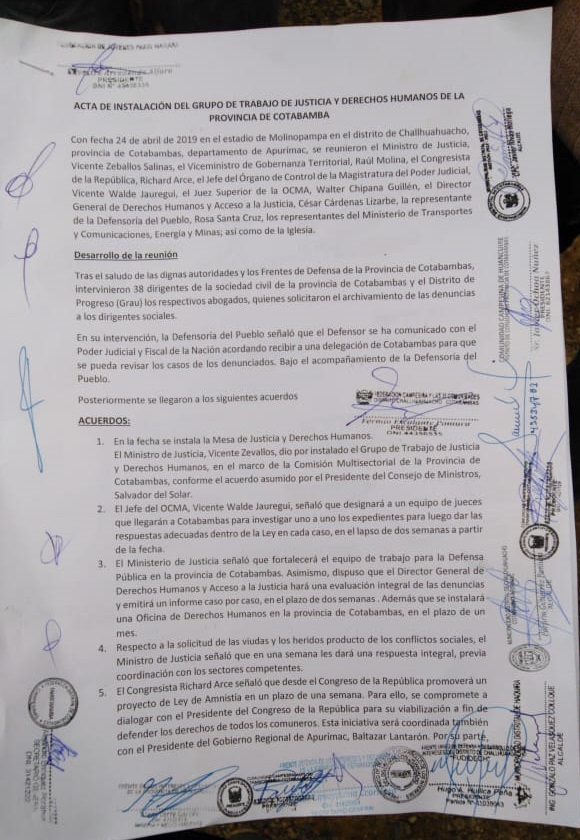 PRESIDENTE
ACTA DE INSTALACIÓN DEL GRUPO DE TRABAJO DE JUSTICIA Y DERECHOS HUMANOS DE LA
PROVINCIA DE COTABAMBA
Con fecha 24 de abril de 2019 en el estadio de Molinopampa en el distrito de Challhuahuacho,
provincia de Cotabambas, departamento de Apurimac, se reunieron el Ministro de Justicia,
Vicente Zeballos Salinas, el Viceministro de Gobernanza Territorial, Raúl Molina, el Congresista
de la República, Richard Arce, el Jefe del Órgano de Control de la Magistratura del Poder Judicial,
Vicente Walde Jauregui, el Juez Superior de la OCMA, Walter Chipana Guillén, el Director
General de Derechos Humanos y Acceso a la Justicia, César Cárdenas Lizarbe, la representante
de la Defensoría del Pueblo, Rosa Santa Cruz, los representantes del Ministerio de Transportes
y Comunicaciones, Energía y Minas; así como de la Iglesia.
Desarrollo de la reunión
Tras el saludo de las dignas autoridades y los Frentes de Defensa de la Provincia de Cotabambas,
intervinieron 38 dirigentes de la sociedad civil de la provincia de Cotabambas y el Distrito de
Progreso (Grau) los respectivos abogados, quienes solicitaron el archivamiento de las denuncias
a los dirigentes sociales.
En su intervención, la Defensoría del Pueblo señaló que el Defensor se ha comunicado con el
Poder Judicial y Fiscal de la Nación acordando recibir a una delegación de Cotabambas para que
se pueda revisar los casos de los denunciados. Bajo el acompañamiento de la Defensoría del
Pueblo.
Posteriormente se llegaron a los siguientes acuerdos
PRESIDENTE
ACUERDOS:
1. En la fecha se instala la Mesa de Justicia y Derechos Humanos.
El Ministro de Justicia, Vicente Zevallos, dio por instalado el Grupo de Trabajo de Justicia
y Derechos Humanos, en el marco de la Comisión Multisectorial de la Provincia de
Cotabambas, conforme el acuerdo asumido por el Presidente del Consejo de Ministros,
Salvador del Solar.
2. El Jefe del OCMA, Vicente Walde Jauregui, señaló que designará a un equipo de jueces
que llegarán a Cotabambas para investigar uno a uno los expedientes para luego dar las
respuestas adecuadas dentro de la Ley en cada caso, en el lapso de dos semanas a partir
de la fecha.
3. El Ministerio de Justicia señaló que fortalecerá el equipo de trabajo para la Defensa
Pública en la provincia de Cotabambas. Asimismo, dispuso que el Director General de
Derechos Humanos y Acceso a la Justicia hará una evaluación integral de las denuncias
y emitirá un informe caso por caso, en el plazo de dos semanas . Además que se instalará
una Oficina de Derechos Humanos en la provincia de Cotabambas, en el plazo de un
mes.
4. Respecto a la solicitud de las viudas y los heridos producto de los conflictos sociales, el
Ministro de Justicia señaló que en una semana les dará una respuesta integral, previa
coordinación con los sectores competentes.
5. El Congresista Richard Arce señaló que desde el Congreso de la República promoverá un
proyecto de Ley de Amnistía en un plazo de una semana. Para ello, se compromete a
dialogar con el Presidente del Congreso de la República para su viabilización a fin de
defender los derechos de todos los comuneros. Esta iniciativa será coordinada también
con el Presidente del Gobierno Regional de Apurímac, Baltazar Lantarón. Por su parte,
COMUNIDAD CAMPESINA DE HUANCUIRE
PRESIDENTE
ALCALDE
ING. GONZALO PAZ VELASQUEZ COLLQUE
ALCALDE
PRESIDENTE